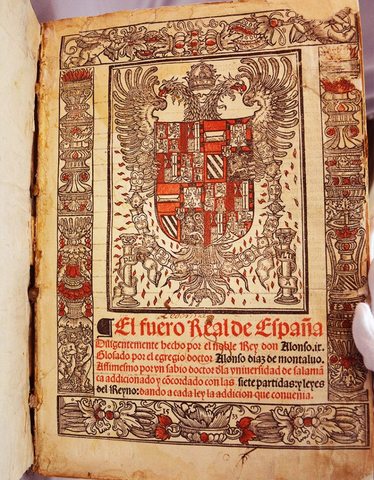 ¶El fuero Real de España
Diligentemente hecho por el noble Rey don Alonso.ix.
Glosado por el egregio doctor Alonso diaz de montaluo.
Assimesmo por vn sabio doctor dla vniuersidad de salamā
ca addicionado y cōcordado con las siete partidas: y leyes
del Reyno: dando a cada ley la addicion que conuenia.